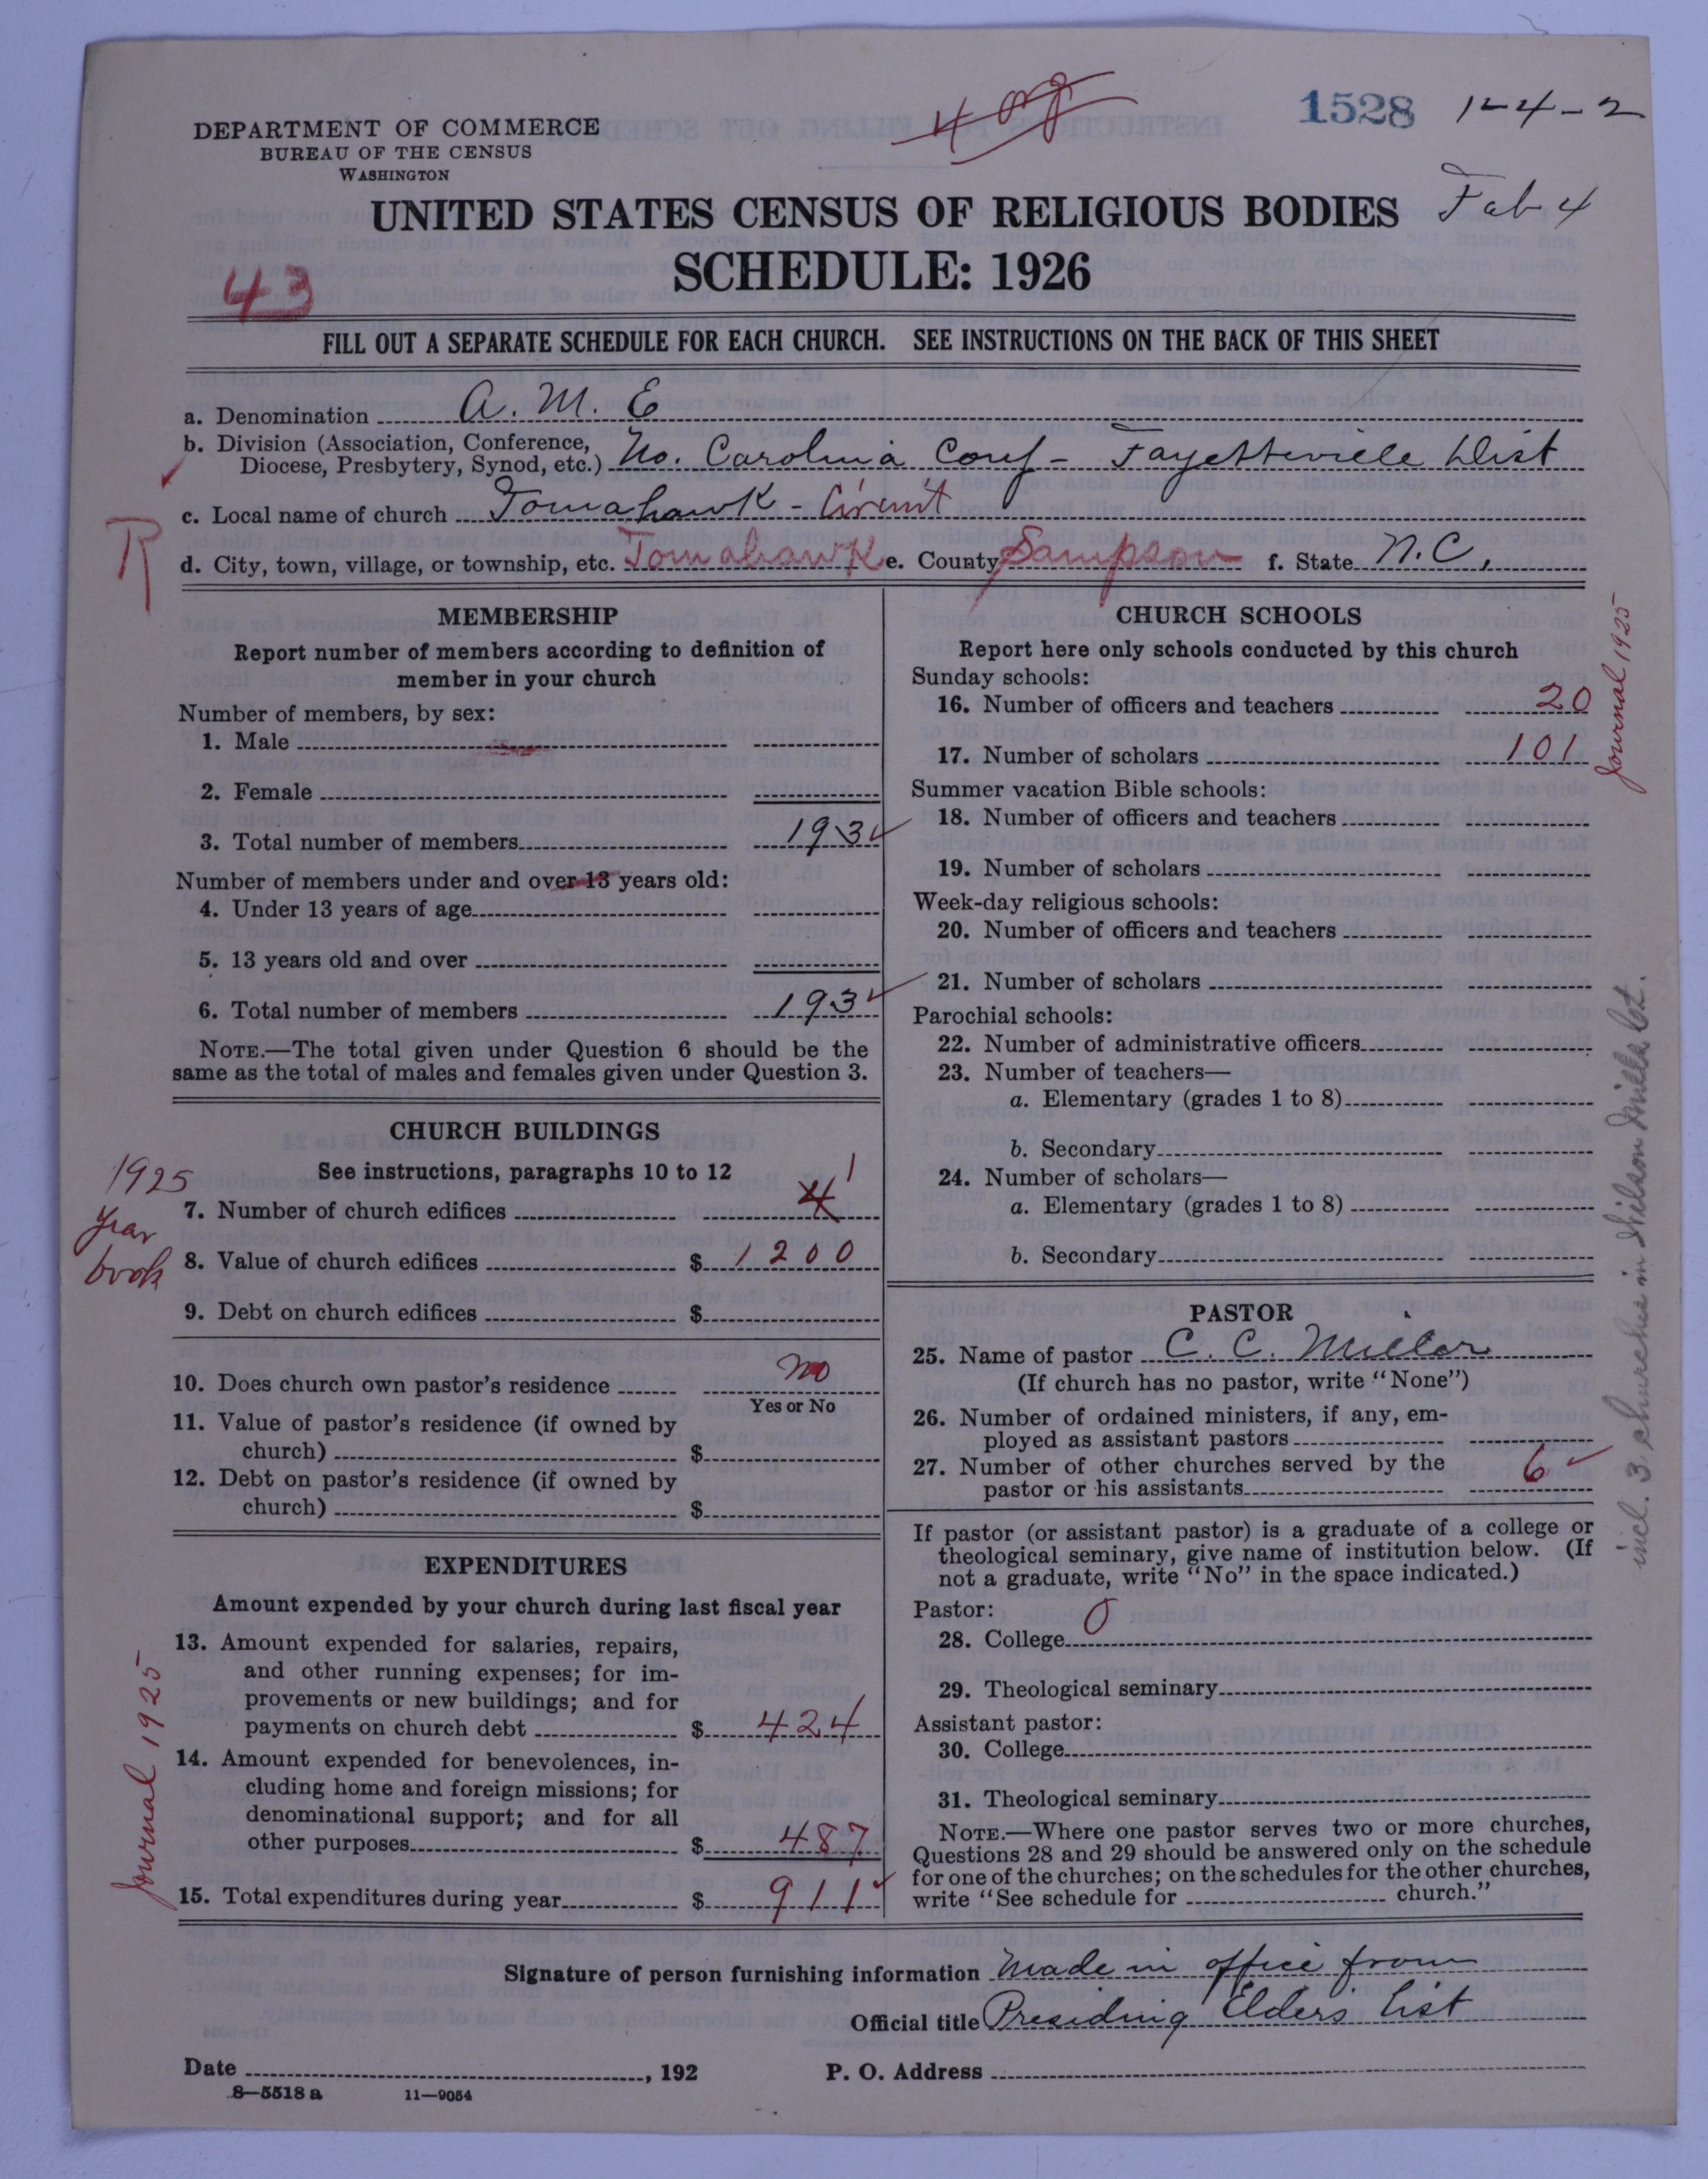 DEPARTMENT OF COMMERCE
BUREAU OF THE CENSUS
WASHINGTON
408
1528 1-4-2
Feb 4
UNITED STATES CENSUS OF RELIGIOUS BODIES
SCHEDULE: 1926
43
FILL OUT A SEPARATE SCHEDULE FOR EACH CHURCH. SEE INSTRUCTIONS ON THE BACK OF THIS SHEET
a. Denomination A. M. E
b. Division (Association, Conference,
Diocese, Presbytery, Synod, etc.) No. Carolina Conf - Fayetteville Dist
c. Local name of church Tomahawk - Circuit
R
d. City, town, village, or township, etc. Tomahawk e. County Sampson f. State N.C.
MEMBERSHIP
Report number of members according to definition of
member in your church
Number of members, by sex:
1. Male
2. Female
3. Total number of members 193 ✓
Number of members under and over 13 years old:
4. Under 13 years of age
5. 13 years old and over
6. Total number of members 193 ✓
NOTE.—The total given under Question 6 should be the
same as the total of males and females given under Question 3.
CHURCH BUILDINGS
See instructions, paragraphs 10 to 12
1925
year
book
7. Number of church edifices 4 1
8. Value of church edifices $ 1200
9. Debt on church edifices $
10. Does church own pastor's residence no
Yes or No
11. Value of pastor's residence (if owned by
church) $
12. Debt on pastor's residence (if owned by
church) $
EXPENDITURES
Amount expended by your church during last fiscal year
13. Amount expended for salaries, repairs,
and other running expenses; for im-
provements or new buildings; and for
payments on church debt $ 424
14. Amount expended for benevolences, in-
cluding home and foreign missions; for
denominational support; and for all
other purposes $ 487
15. Total expenditures during year $ 911 ✓
Journal 1925
CHURCH SCHOOLS
Report here only schools conducted by this church
Sunday schools:
16. Number of officers and teachers 20
17. Number of scholars 101
Journal 1925
Summer vacation Bible schools:
18. Number of officers and teachers
19. Number of scholars
Week-day religious schools:
20. Number of officers and teachers
21. Number of scholars
Parochial schools:
22. Number of administrative officers
23. Number of teachers—
a. Elementary (grades 1 to 8)
b. Secondary
24. Number of scholars—
a. Elementary (grades 1 to 8)
b. Secondary
PASTOR
25. Name of pastor C. C. Miller
(If church has no pastor, write "None")
26. Number of ordained ministers, if any, em-
ployed as assistant pastors
27. Number of other churches served by the
pastor or his assistants 6 ✓
incl. 3 churches in Wilson Mills Cct.
If pastor (or assistant pastor) is a graduate of a college or
theological seminary, give name of institution below. (If
not a graduate, write "No" in the space indicated.)
Pastor:
28. College 0
29. Theological seminary
Assistant pastor:
30. College
31. Theological seminary
NOTE.—Where one pastor serves two or more churches,
Questions 28 and 29 should be answered only on the schedule
for one of the churches; on the schedules for the other churches,
write "See schedule for church."
Signature of person furnishing information Made in office from
Official title Presiding Elders List
Date , 192
P. O. Address
8—5518 a 11—9054